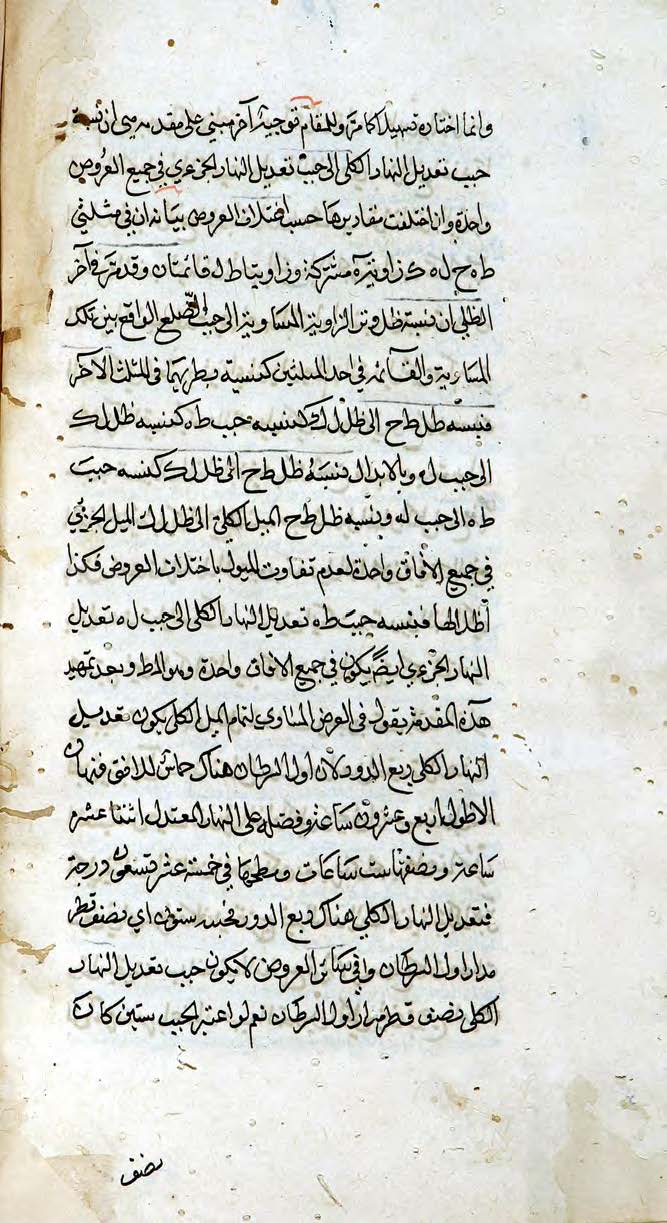 وانما اختاره تسهيلا كما مر وللمقام توجيه آخر مبني على مقدمه هي ان نسبة
جيب تعديل النهار الكلي الى جيب تعديل النهار الجزءي في جميع العروض
واحدة وان اختلفت مقاديرها حسب اختلاف العروض بيانه ان في مثلثي
ط ه ح ل ه ك زاوية ه مشتركة وزاويتا ط ل قائمتان وقد مر في آخر
الظلي ان نسبة ظل وتر الزاوية المساوية الى جيب الضلع الواقع بين تلك
المساوية والقآئمه في احد المثلثين كنسبة نظيريهما في المثلث الآخر
فنسبه ظل ط ح الى ظل ل ك كنسبه جيب ط ه كنسبه ظل ل ك
الى جيب ل ه وبالابدال نسبة ظل ط ح الى ظل ل ك كنسبه جيب
ط ه الى جيب ل ه ونسبه ظل ط ح الميل الكلي الى ظل ل ك الميل الجزئي
في جميع الافاق واحدة لعدم تفاوت الميول باختلاف العروض فكذا
اظلالها فنسبه جيب ط ه تعديل النهار الكلي الى جيب ل ه تعديل
النهار الجزءي ايضا يكون في جميع الافاق واحدة وهو المط وبعد تمهيد
هذه المقدمة يقول في العرض المساوي لتمام الميل الكلي يكون تعديل
النهار الكلي ربع الدور لان اول السرطان هناك مماس للافق فنهاره
الاطول اربع وعشرون ساعة وفضله على النهار المعتدل اثنتا عشره
ساعة ونصفها ست ساعات وسطحها في خمسة عشر تسعون درجة
فتعديل النهار الكلي هناك ربع الدور فجيبه ستون اي نصف قطر
مدار اول السرطان وافي سائر العروض لا يكون جيب تعديل النهار
الكلي نصف قطر مدار اول السرطان نعم لو اعتبر الجيب ستين كان
نصف